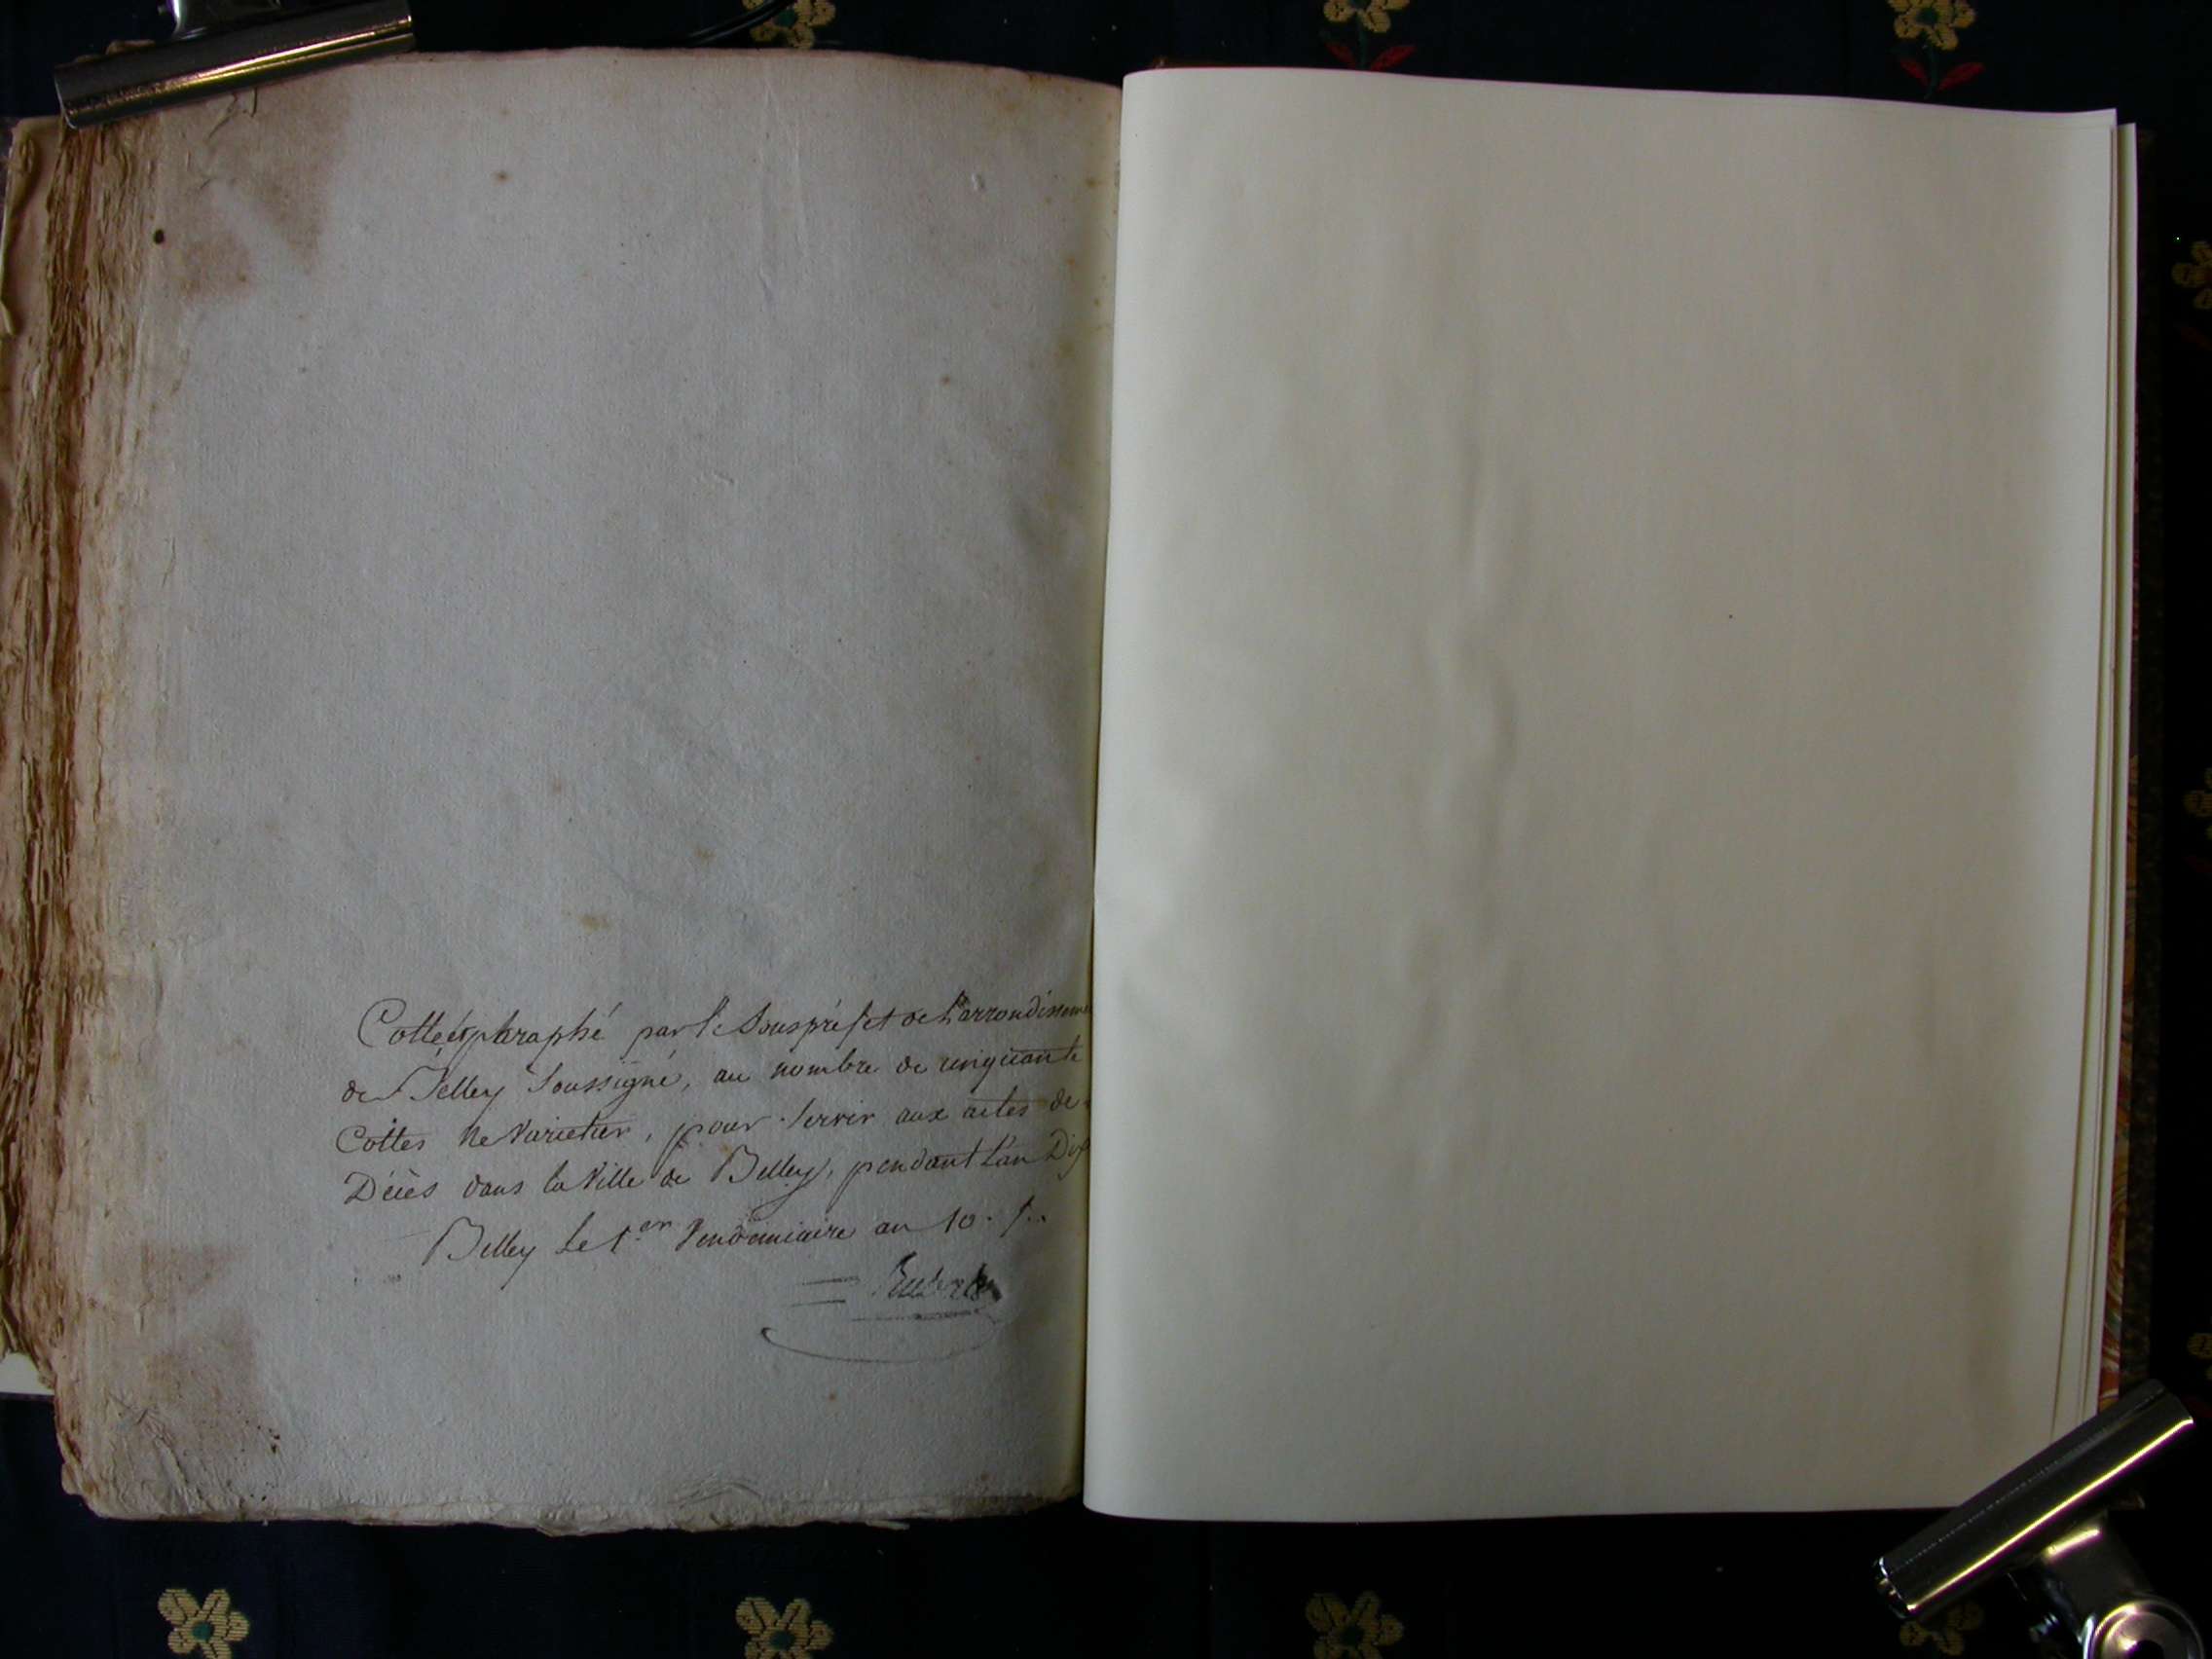 Cotté et paraphé par le Souspréfet de L'arrondisseme
de Belley Soussigné, au nombre de cinquante
Cottes Ne Varietur, pour Servir aux actes de
Décès dans la Ville de Belley, pendant L'an Dix
Belley Le 1.er Vendémiaire an 10.